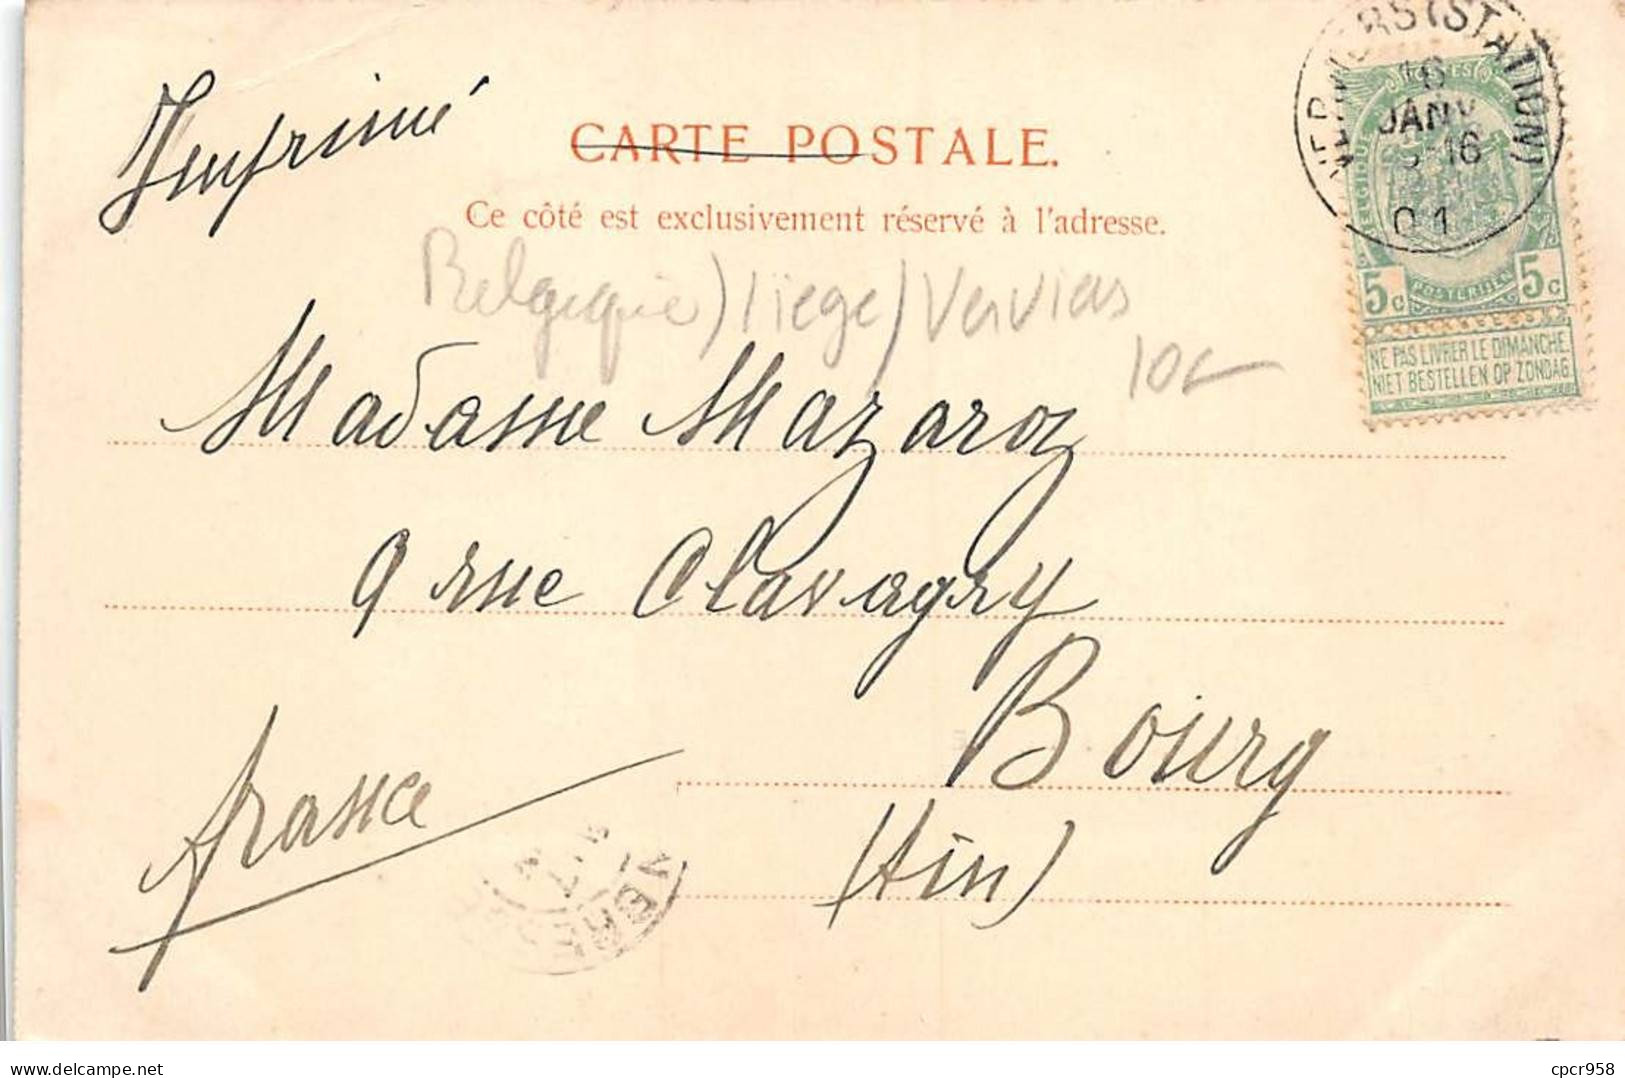 Imprimé
CARTE POSTALE.
Ce côté est exclusivement réservé à l'adresse.
Belgique) liège) Verviers
10
(STATION)
16
JANV
01
5c 5c
NE PAS LIVRER LE DIMANCHE
NIET BESTELLEN OP ZONDAG
Madame Mazaroz
9 rue Clavagry
Bourg
(Ain)
france
delcampe.net
cpcr958